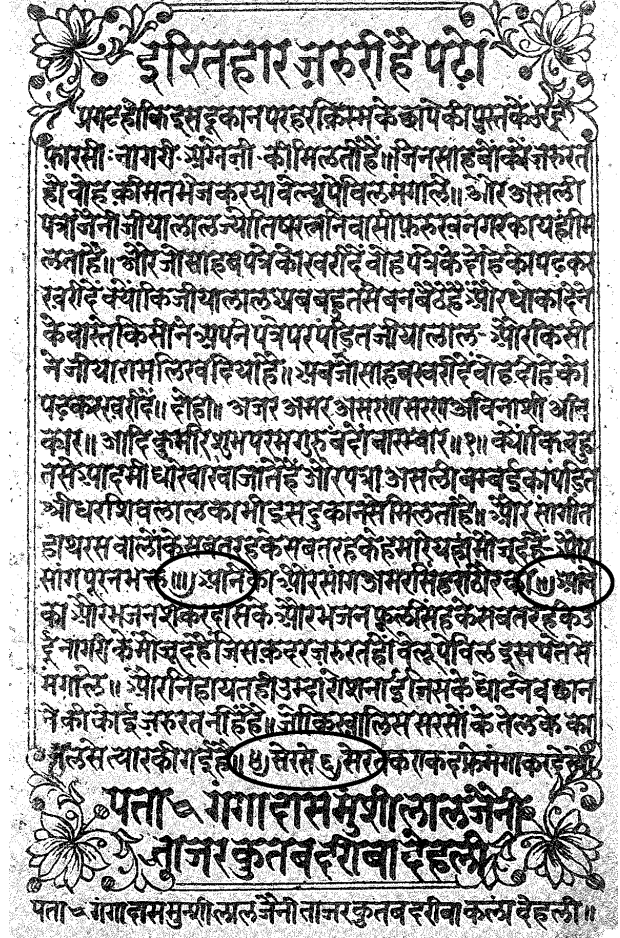 इश्तिहार ज़रूरी है पढ़ो
प्रगट हो कि इस दूकान पर हर किस्म के छापे की पुस्तकें उरदू
फारसी नागरी अंग्रेजी की मिलती हैं॥ जिन साहबों को ज़रुरत
हो वोह कीमत भेजकर या वेल्यूपेविल मगालें॥ और असली
पत्रा जैनी जीयालाल ज्योतिष रत्न निवासी फ़रुखनगर का यहीं मि
लता है॥ और जो साहब पत्रे को खरीदें वोह पत्रे के दोहे को पढ़कर
खरीदें क्योंकि जीयालाल अब बहुत से बन बैठे हैं और धोका देने
के वास्ते किसी ने अपने पत्रे पर पंडित जीयालाल और किसी
ने जीयाराम लिख दिया है॥ अब जो साहब खरीदें वोह दोहे को
पढ़कर खरीदें॥ दोहा॥ अजर अमर असरण सरण अविनाशी अवि
कार॥ आदि कुमरि शुभ परम गुरु बंदों बारम्बार॥१॥ क्योंकि बहु
त से आदमी धोखा खा जाते हैं और पत्रा असली बम्बई का पंडित
श्रीधर शिवलाल का भी इस दुकान से मिलता है॥ और सांगीत
हाथरस वालों के सब तरह के सब तरह के हमारे यहां मौजूद हैं और
सांग पूरनभक्त ॥।) आने का और सांग अमरसिंह राठौर का ॥) आने
का और भजन शंकरदास के और भजन फूलसिंह के सब तरह के उ
र्दू नागरी के मौजूद हैं जिस कदर ज़रुरत हो वेलूपेविल इस पते से
मगालें॥ और निहायत ही उम्दा रोशनाई जिसके घोटने व छान
ने की कोई ज़रुरत नहीं है॥ जोकि खालिस सरसों के तेल के का
जल से त्यार की गई है॥ ५) सेर से ६) सेर तक एक दफ़े मंगाकर देखो
पता गंगादास मुंशीलाल जैनी
ताजर कुतब दरीबा देहली
पता गंगादास मुन्शीलाल जैनी ताजर कुतब दरीबा कलां देहली॥